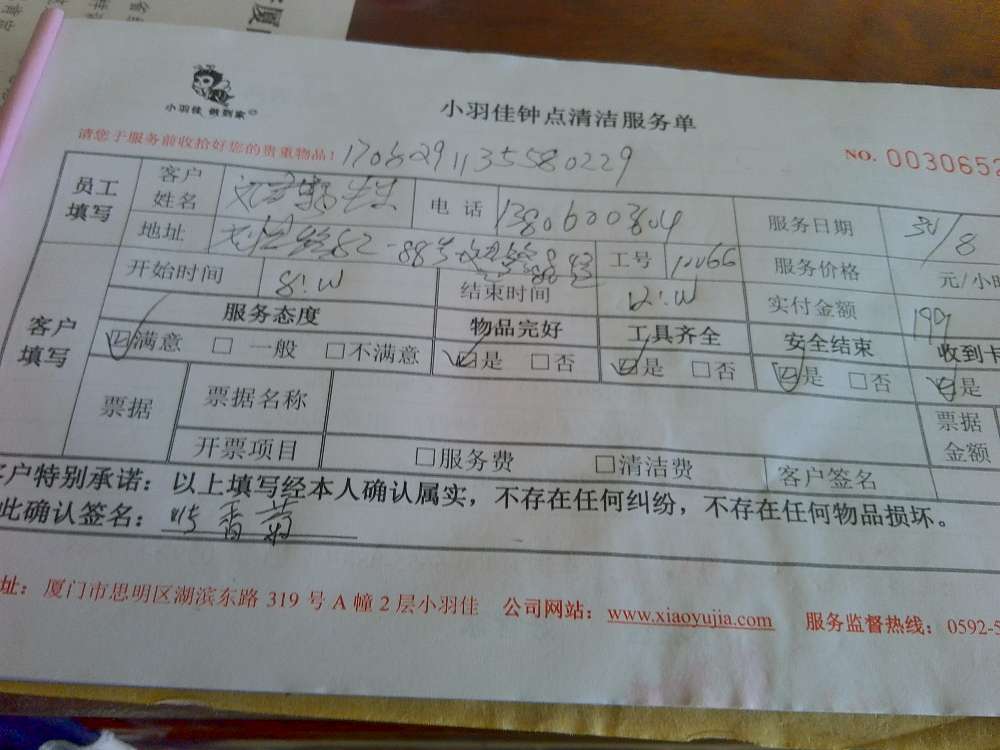 小羽佳 做到家
小羽佳钟点清洁服务单
请您于服务前收拾好您的贵重物品！
NO. 0030652
员工填写 客户姓名 先生 电话 服务日期 8
地址 工号 服务价格 元/小时
开始时间 8: 结束时间 12: 实付金额 199
客户填写 服务态度 物品完好 工具齐全 安全结束 收到卡
☑满意 □ 一般 □不满意 ☑是 □否 ☑是 □否 ☑是 □否 ☑是
票据 票据名称 票据金额
开票项目 □服务费 □清洁费 客户签名
客户特别承诺：以上填写经本人确认属实，不存在任何纠纷，不存在任何物品损坏。
此确认签名：
址：厦门市思明区湖滨东路 319 号 A 幢 2 层小羽佳 公司网站：www.xiaoyujia.com 服务监督热线：0592-5